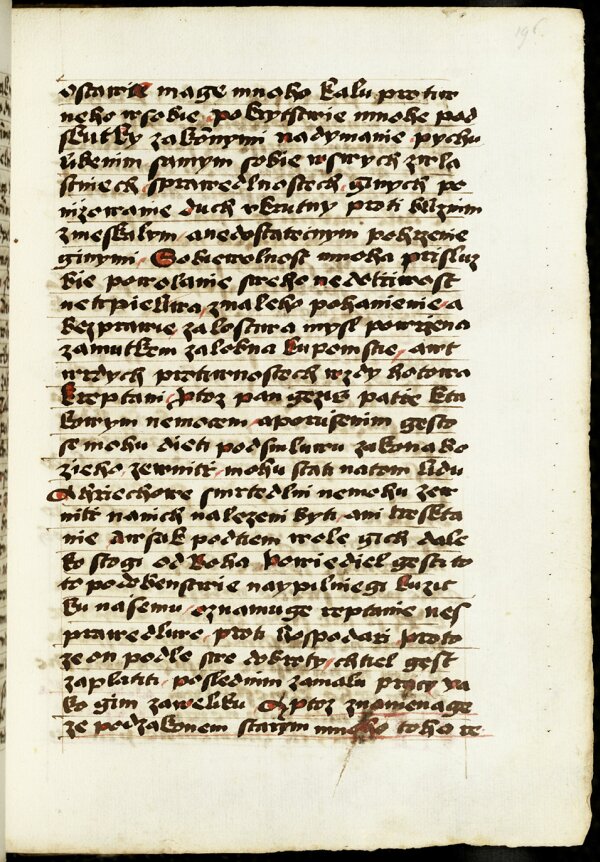 196
ostawil mage mnoho kalu protiw
neho wsobie pokrytstwie mnohe pod
skutky zakonnymi nadymanie pychu
libenim samym sobie wswych zwla
stniech sprawedlnostech ginych po
nizowanie duch ukrutny proti bliznim
zmeskalym anedostatecnym pohrzenie
ginymi Sobiewolnost mnoha prisluz
bie powolanie sweho nedotciwost
netrpieliwa znaleho pohanienie a
bezprawie zalostiwa mysl powrzena
zamutkem zalobna kupomstie awt
wrdych protiwnostech wzdy hotowa
kreptani Protoz pan gezis patie kta
kowym nemocem aporusenim gesto
se mohu dieti podsmluwu zakona bo
zieho zewnitr mohu stati natom lidu
Ahriechowe smrtedlni nemohu zew
nitr nanich nalezeni byti ani treskta
nie awsak podtiem wole gich dale
ko stogi od boha Powiediel gest i to
to podobenstwie naypilniegi kuzit
ku nasemu oznamuge reptanie nes
prawedliwe proti hospodari Proto
ze on podle swe dobroty chtiel gest
zaplatiti poslednim zamalu praci ya
ko gim zaweliku Protoz znamenage
ze podzakonem starym mnoho toho re